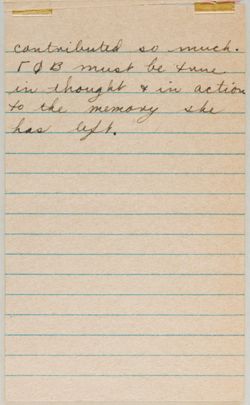 contributed so much.
Γ Φ B must be true
in thought & in action
to the memory she
has left.